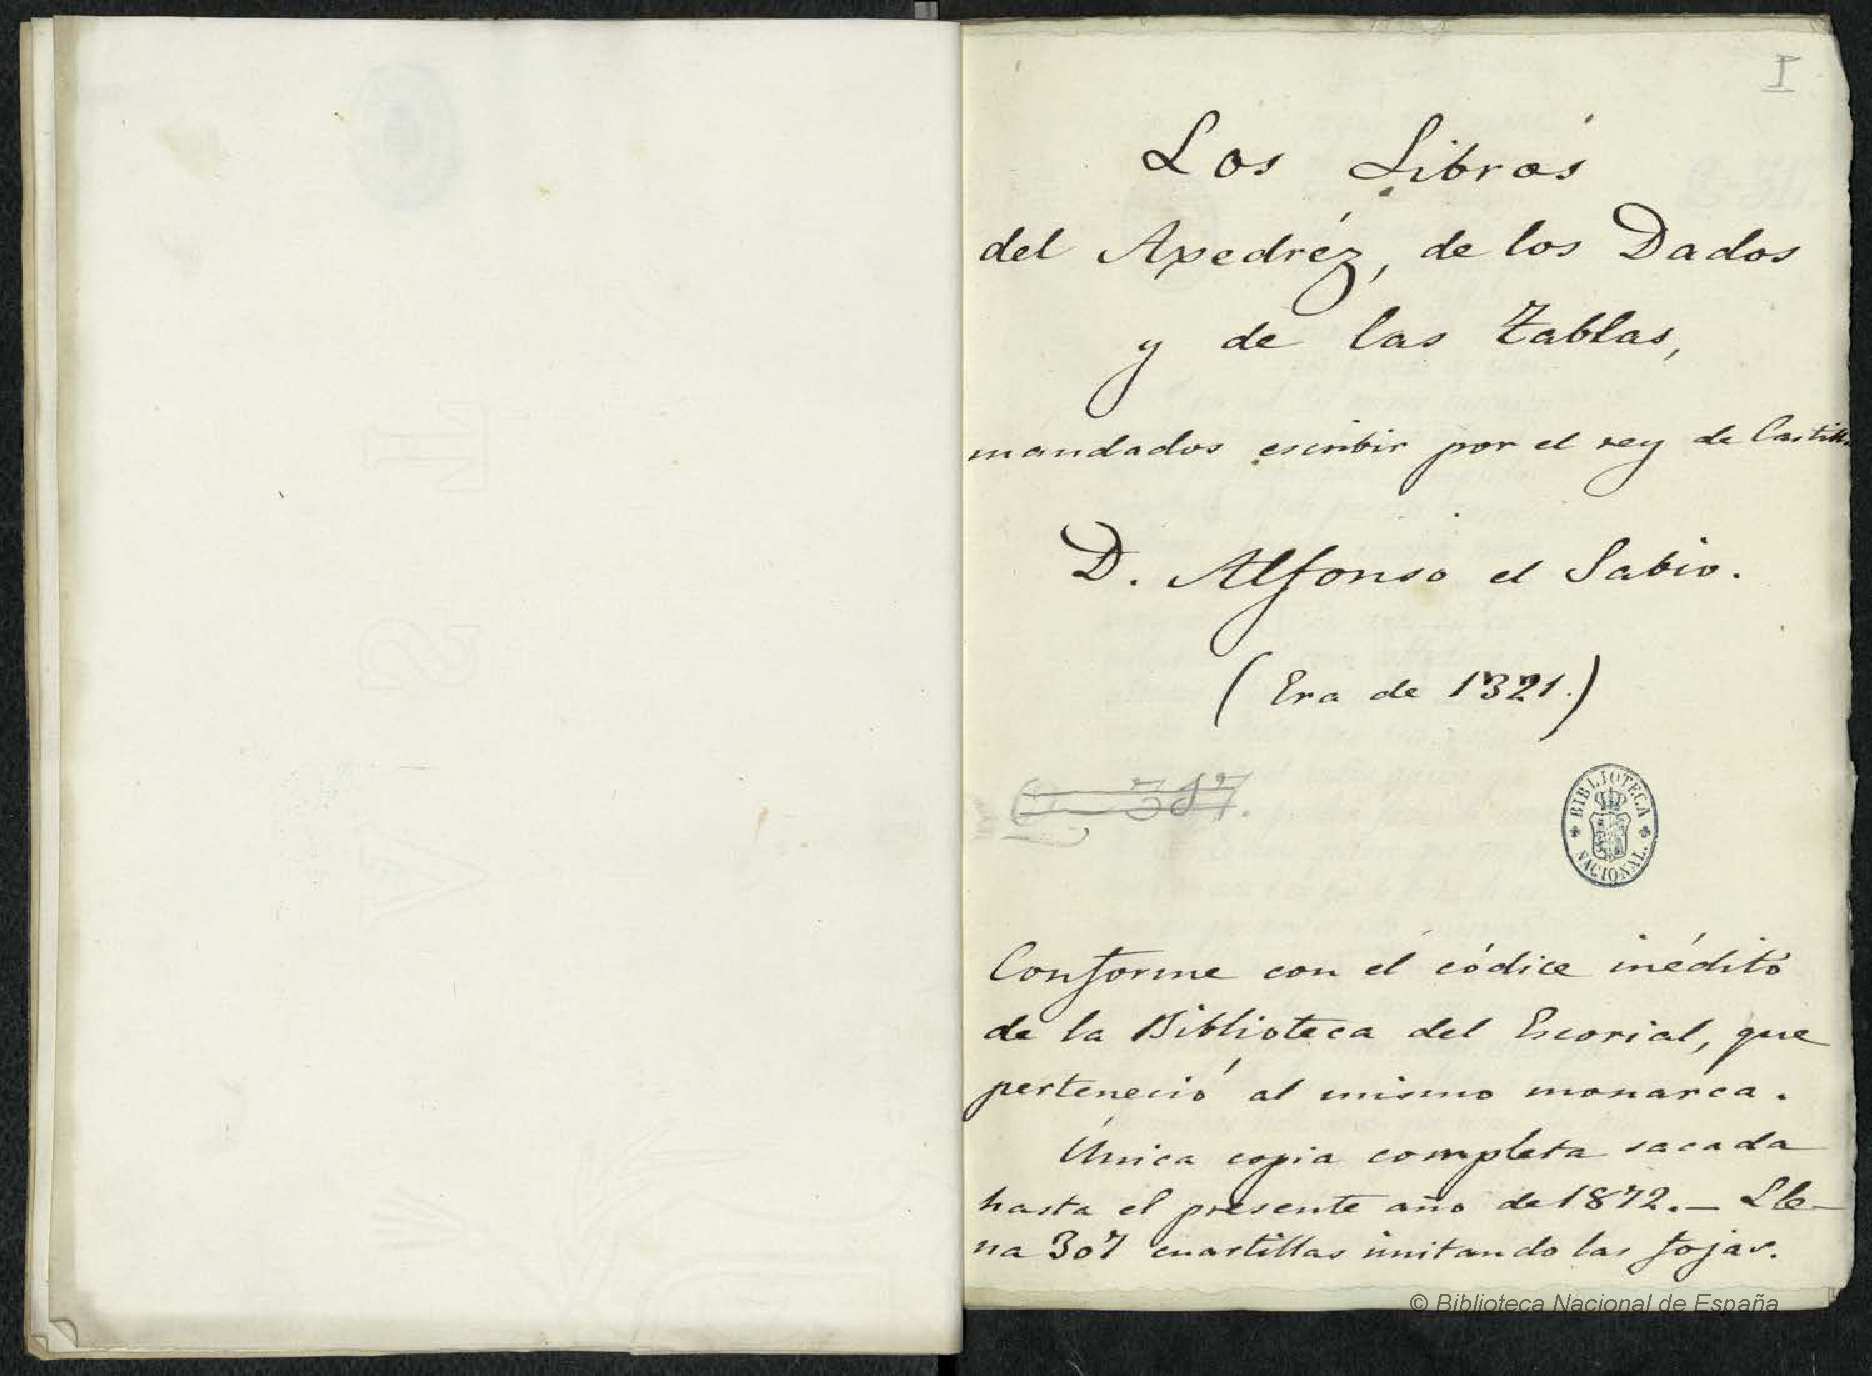 I
Los Libros
del Axedréz, de los Dados
y de las Tablas,
mandados escribir por el rey de Castilla
D. Alfonso el Sabio.
(Era de 1321.)
BIBLIOTECA NACIONAL.
Conforme con el códice inédito
de la Biblioteca del Escorial, que
perteneció al mismo monarca.
Única copia completa sacada
hasta el presente año de 1872. — Lle-
na 307 cuartillas imitando las fojas.
© Biblioteca Nacional de España